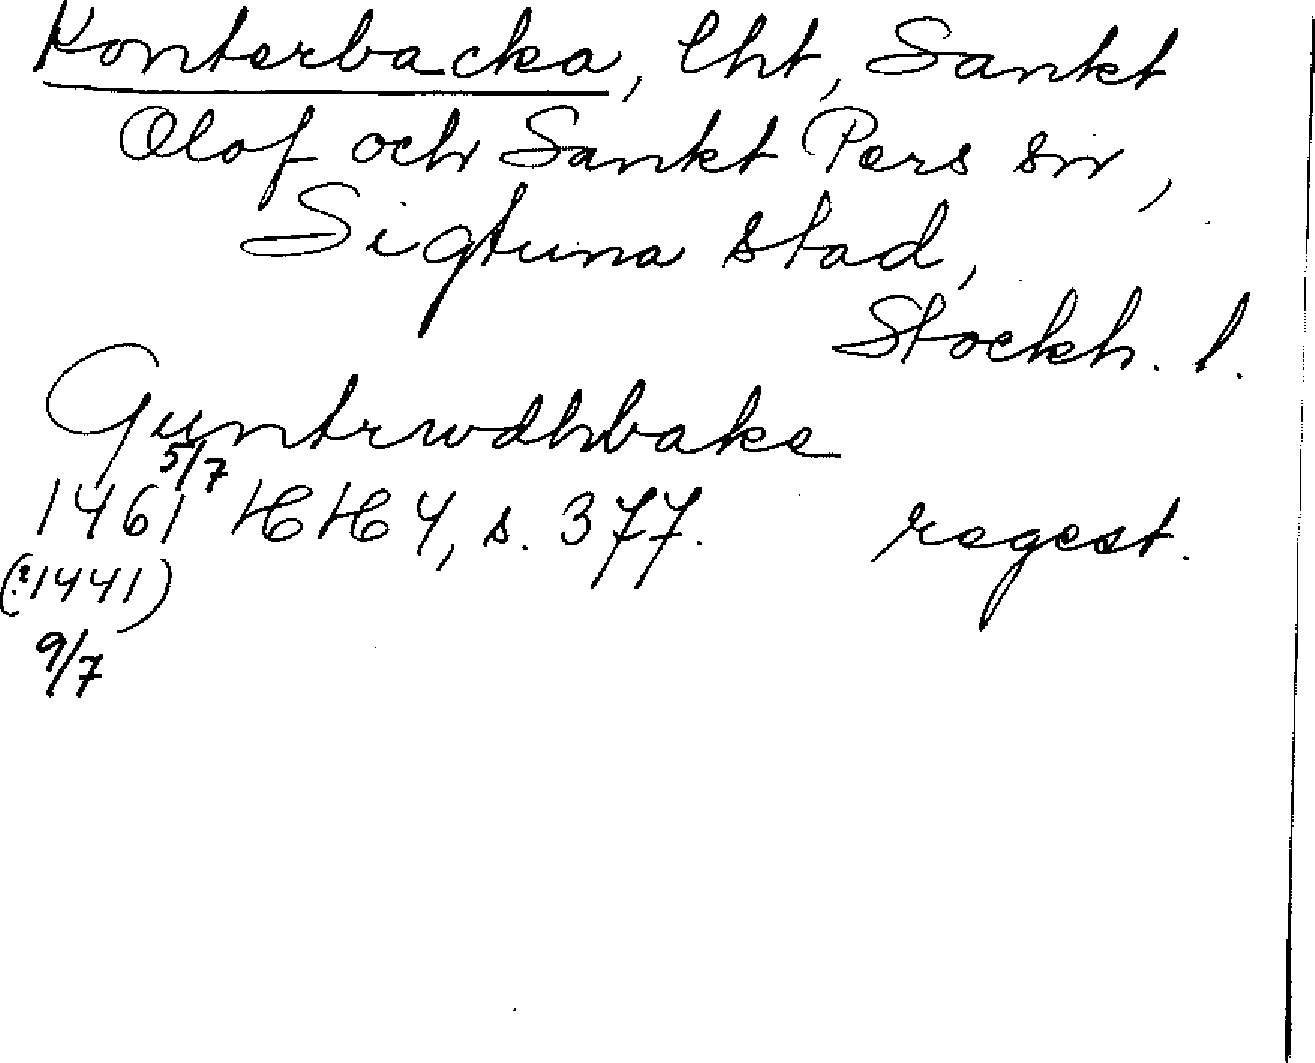 Konterbacka, lht, Sankt
Olof och Sankt Pers snr,
Sigtuna stad,
Stockh. l.
Guntrwdhbake
5/7
1461 HH 4, s. 377. regest.
(:1441)
9/7